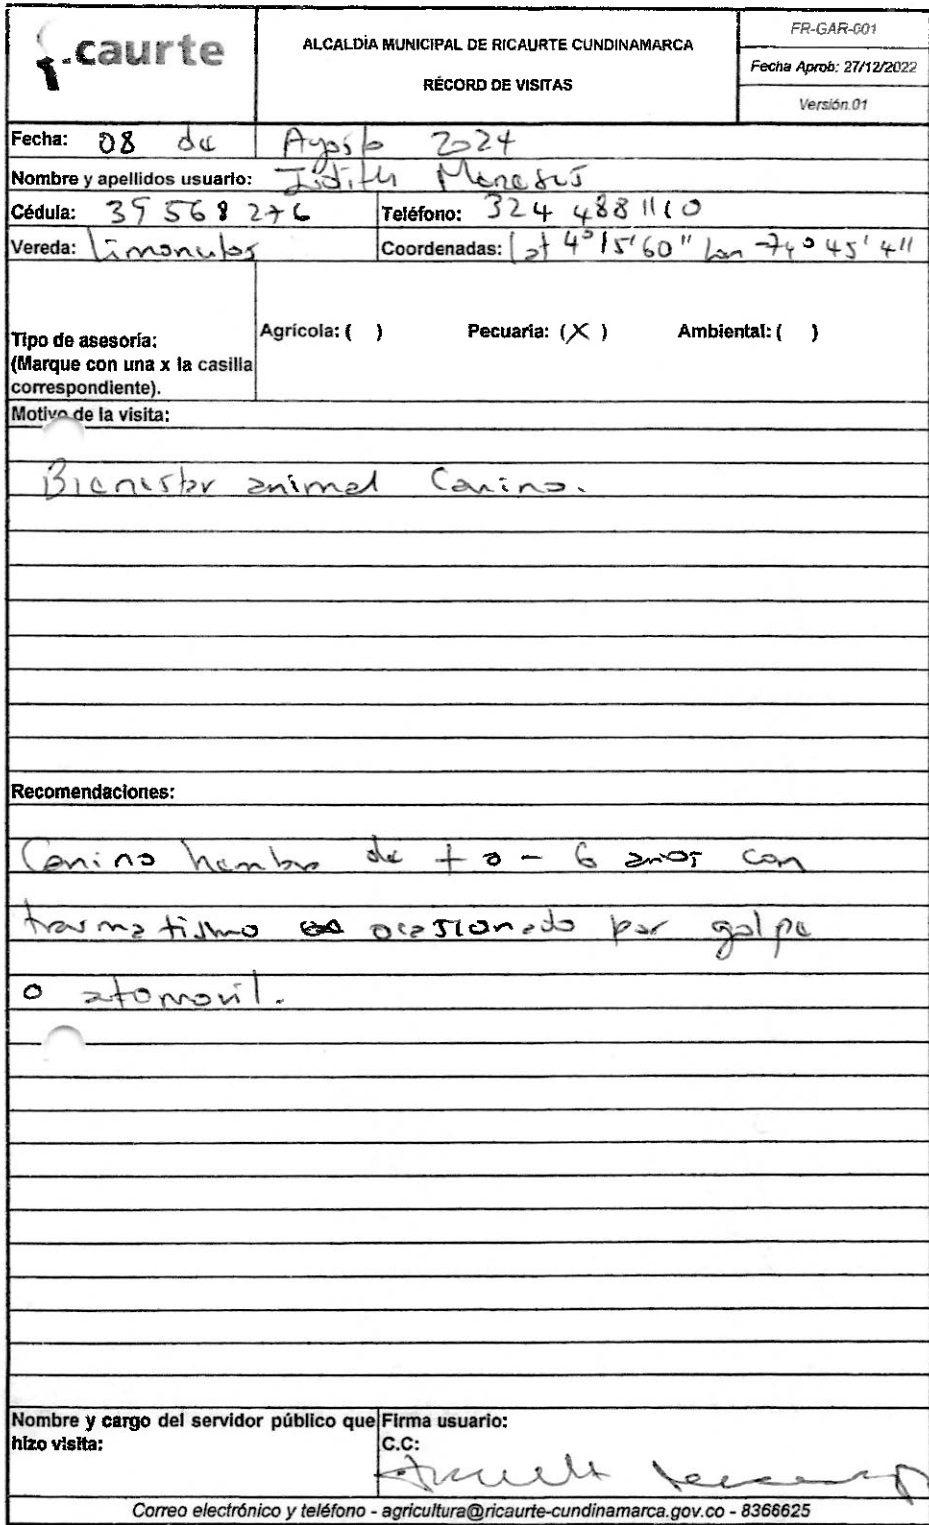 .caurte
ALCALDÍA MUNICIPAL DE RICAURTE CUNDINAMARCA
RÉCORD DE VISITAS
FR-GAR-001
Fecha Aprob: 27/12/2022
Versión.01
Fecha: 08 de Agosto 2024
Nombre y apellidos usuario: Judith Meneses
Cédula: 39 568 276 Teléfono: 324 488 1110
Vereda: Limoncitos Coordenadas: lat 4° 15' 60" lon -74° 45' 4"
Tipo de asesoría:
(Marque con una x la casilla
correspondiente).
Agrícola: ( ) Pecuaria: (X) Ambiental: ( )
Motivo de la visita:
Bienestar animal Canino.
Recomendaciones:
Canino hembra de + o - 6 anos con
traumatismo ocasionado por golpe
o atomovil.
Nombre y cargo del servidor público que
hizo visita:
Firma usuario:
C.C:
Correo electrónico y teléfono - agricultura@ricaurte-cundinamarca.gov.co - 8366625